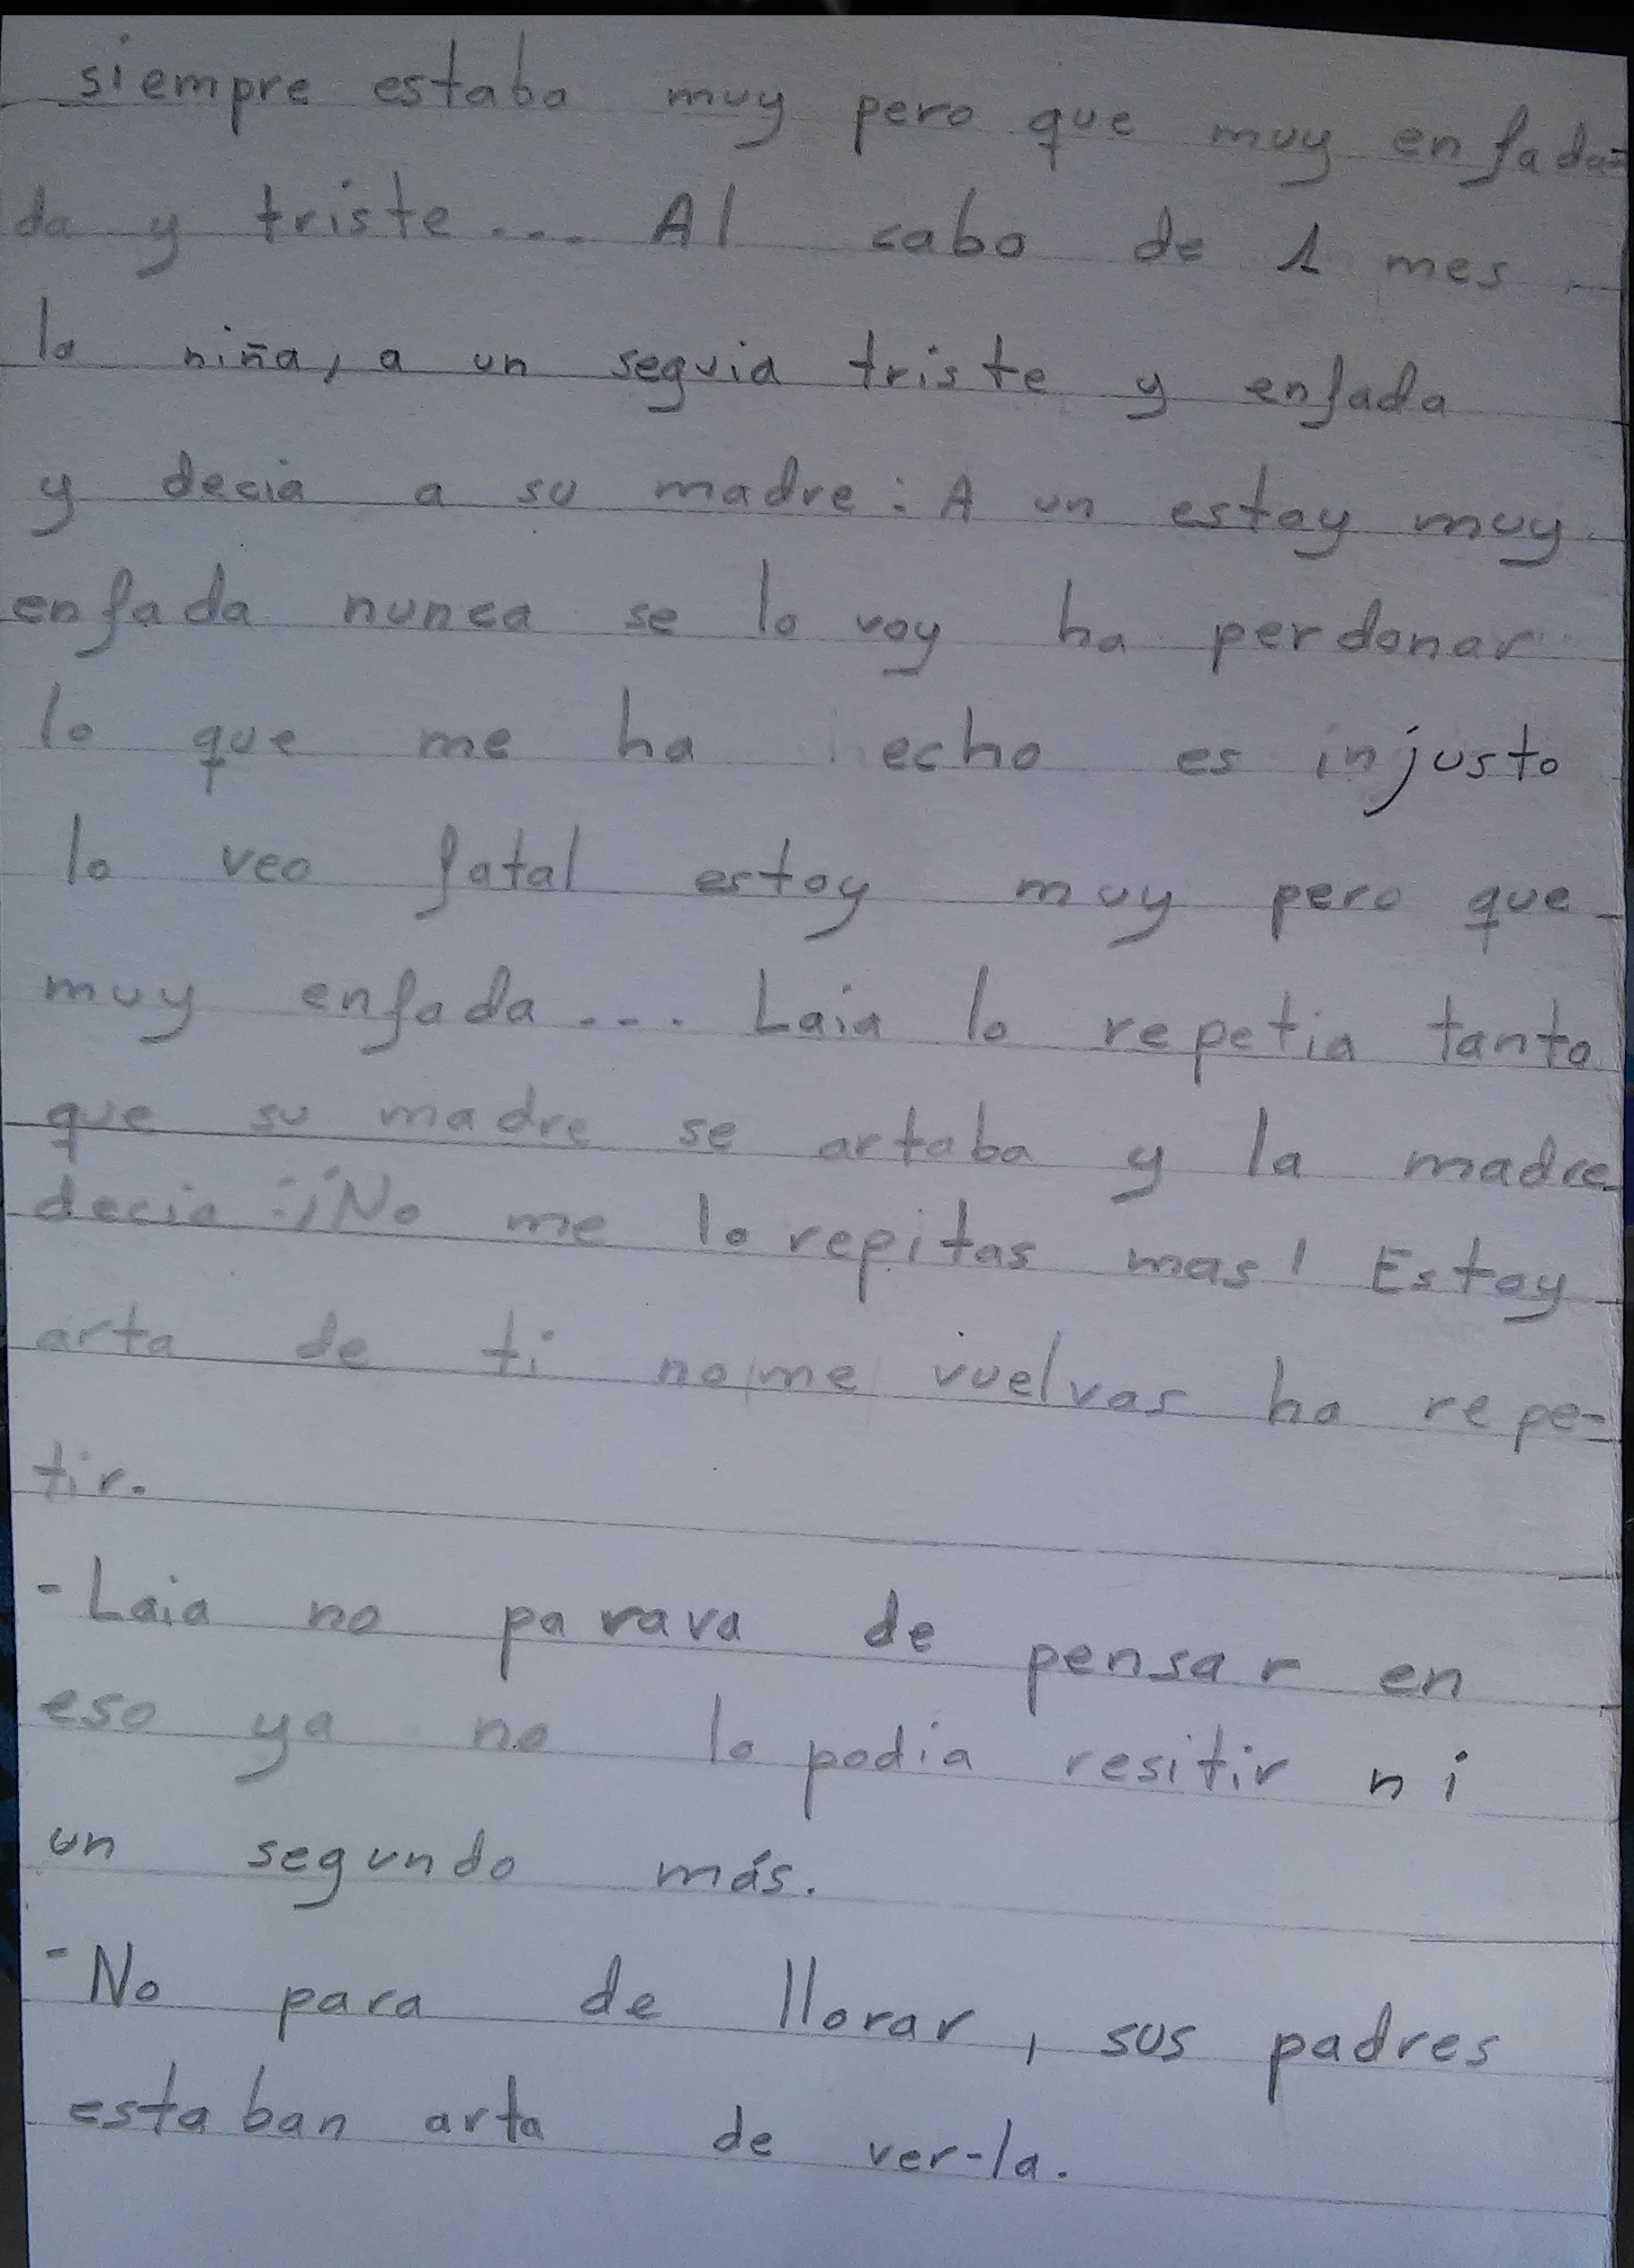 siempre estaba muy pero que muy enfada-
da y triste... Al cabo de 1 mes
la niña, a un seguia triste y enfada
y decia a su madre: A un estoy muy
enfada nunca se lo voy ha perdonar
lo que me ha hecho es injusto
lo veo fatal estoy muy pero que
muy enfada... Laia lo repetia tanto
que su madre se artaba y la madre
decia: ¡No me lo repitas mas! Estoy
arta de ti no me vuelvas ha repe-
tir.
- Laia no parava de pensar en
eso ya no lo podia resitir ni
un segundo más.
- No para de llorar, sus padres
estaban arta de ver-la.